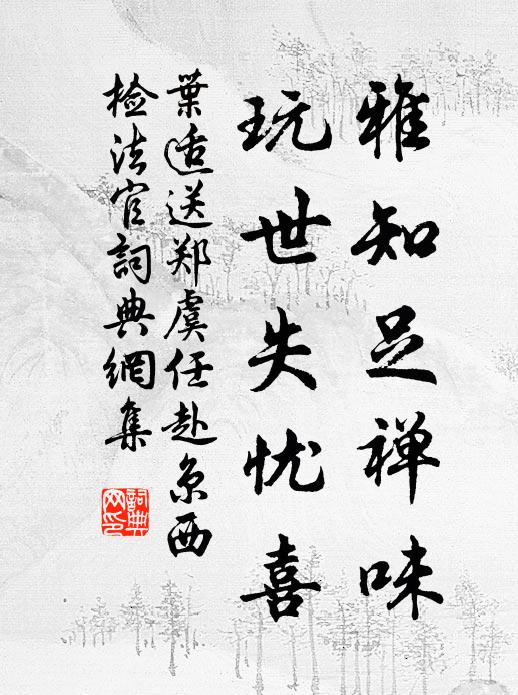 雅知足禅味
玩世失忧喜
葉适送郑虞任赴京西
检法官詞典網集
詞典
网印